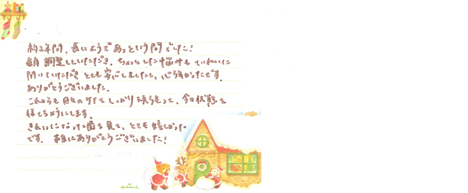 約2年間、長いようであっという間でした!
毎月調整していただき、ちょっとした悩みもていねいに
聞いていただき とても安心しましたし、心強かったです。
ありがとうございました。
これからも自分の歯でしっかり気をもって、今の状態を
保てるようにします。
きれいになった歯を見て、とても嬉しかった
です。本当にありがとうございました!